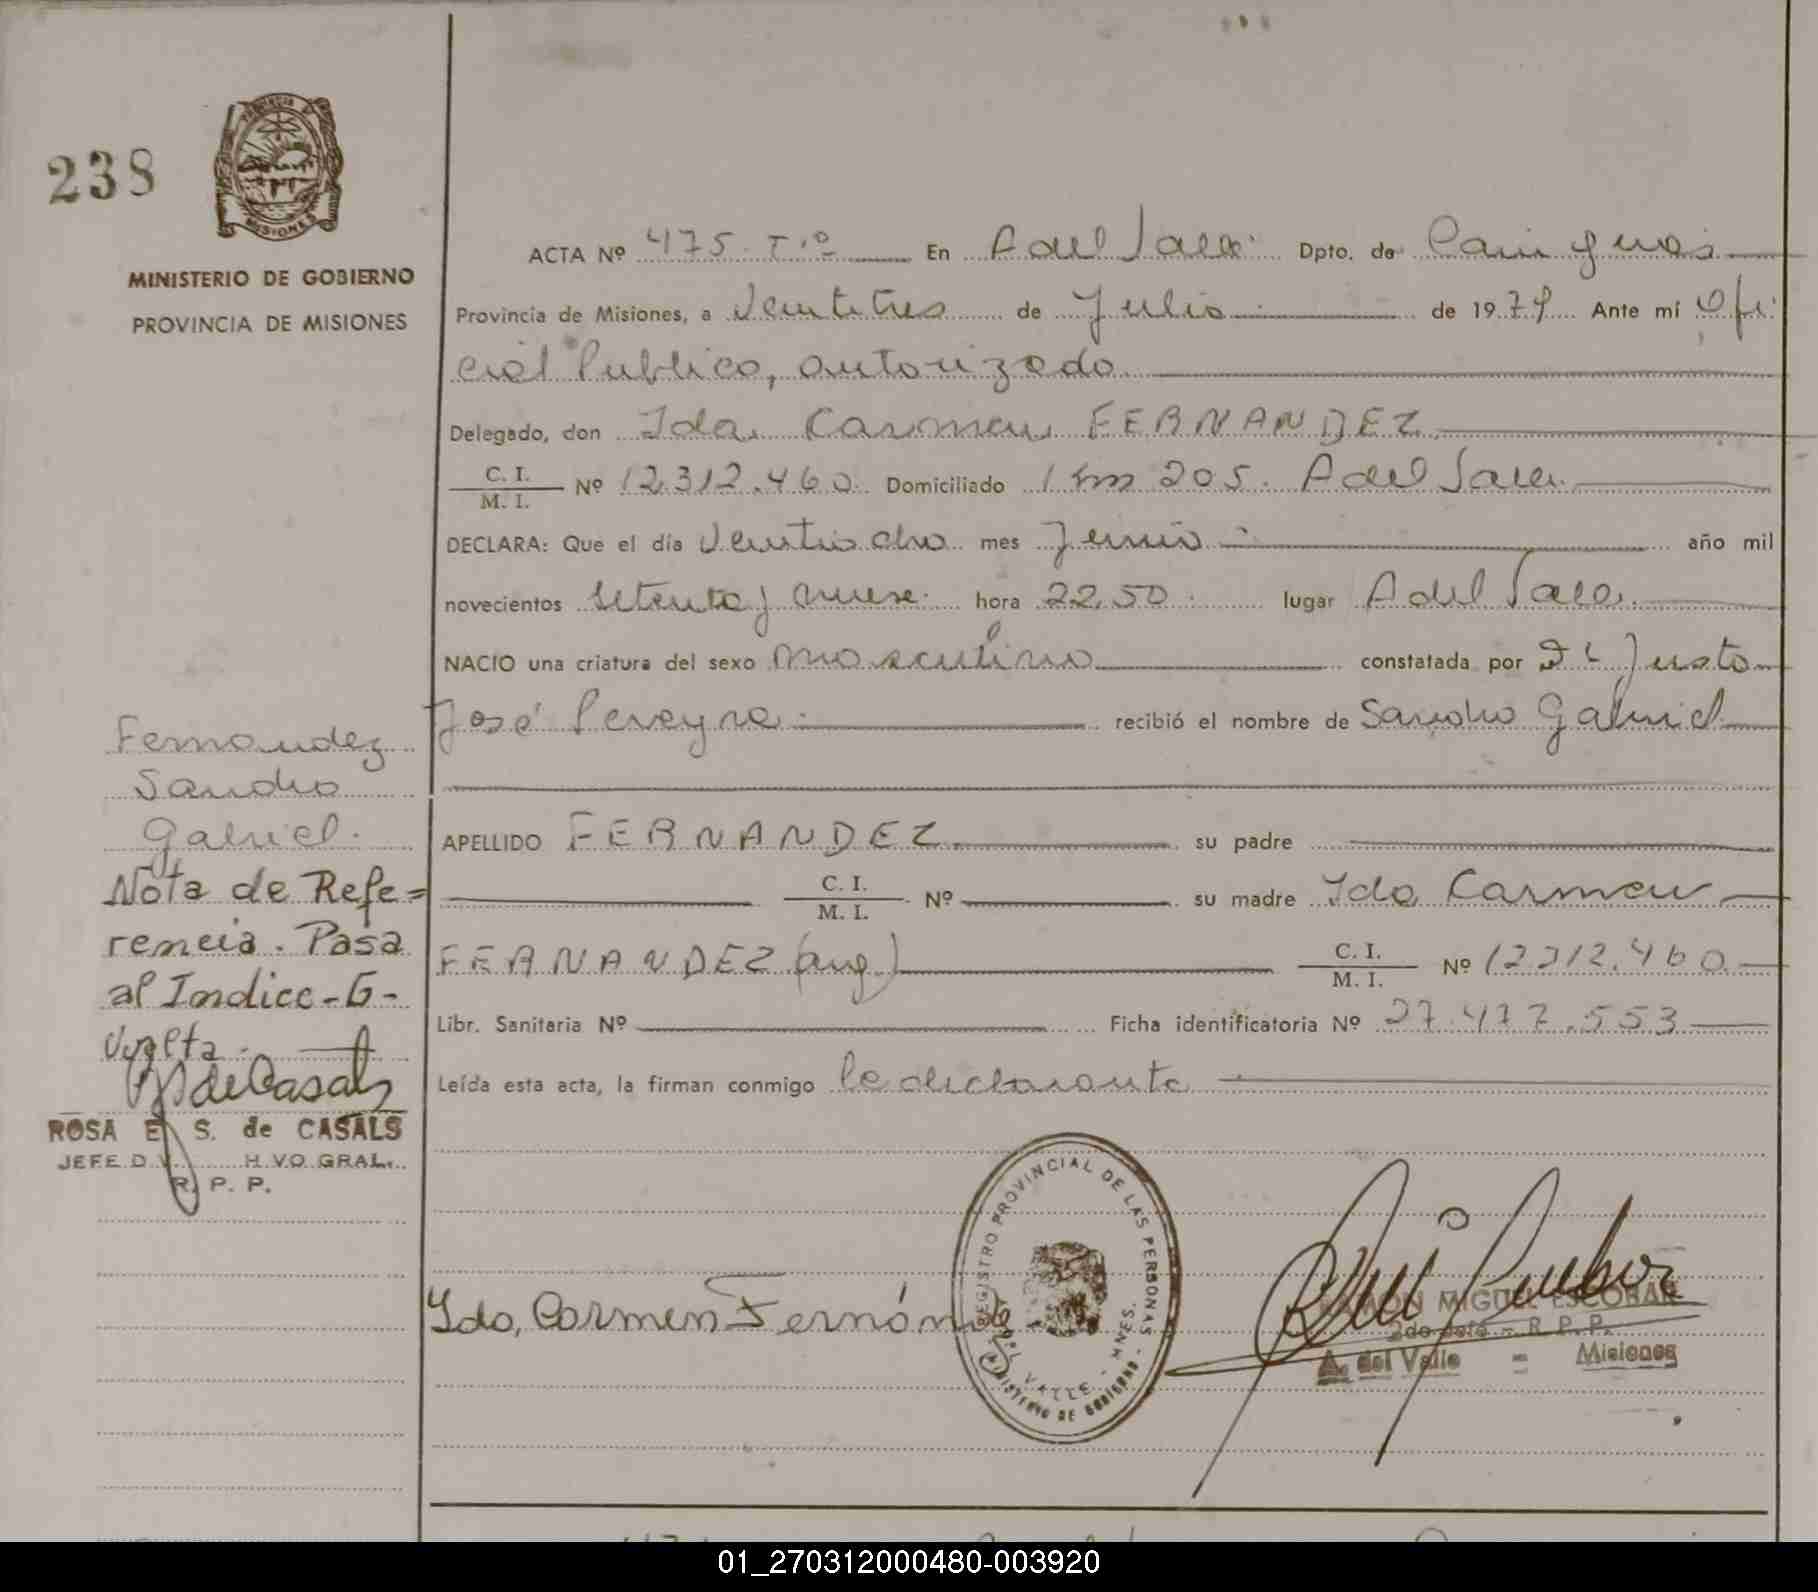 238
MISIONES
MINISTERIO DE GOBIERNO
PROVINCIA DE MISIONES
Fernandez
Sandro
Gabriel.
Nota de Refe=
rencia. Pasa
al Indice-G-
Vuelta.
ROSA E. S. de CASALS
R. P. P.
ACTA Nº 475. Tº En A del Valle. Dpto. de Cainguas
Provincia de Misiones, a Veintitres de Julio de 1979 Ante mí Ofi
cial Publico, autorizado
Delegado, don Ida Carmen FERNANDEZ
C. I.
M. I. Nº 12.312.460 Domiciliado Km 205. A del Valle.
DECLARA: Que el día Veintiocho mes Junio año mil
novecientos setenta y nueve. hora 22,50. lugar A del Valle.
NACIO una criatura del sexo masculino constatada por Dr Justo
José Pereyra recibió el nombre de Sandro Gabriel
APELLIDO FERNANDEZ su padre
C. I.
M. I. Nº su madre Ida Carmen
FERNANDEZ (arg) C. I.
M. I. Nº 12312.460
Libr. Sanitaria Nº Ficha identificatoria Nº 27.477.553
Leída esta acta, la firman conmigo la declarante
REGISTRO PROVINCIAL DE LAS PERSONAS
A. DEL VALLE - MNES.
MINISTERIO DE GOBIERNO
Ida, Carmen Fernández
RAMON MIGUEL ESCOBAR
R. P. P.
A. del Valle = Misiones
01_270312000480-003920